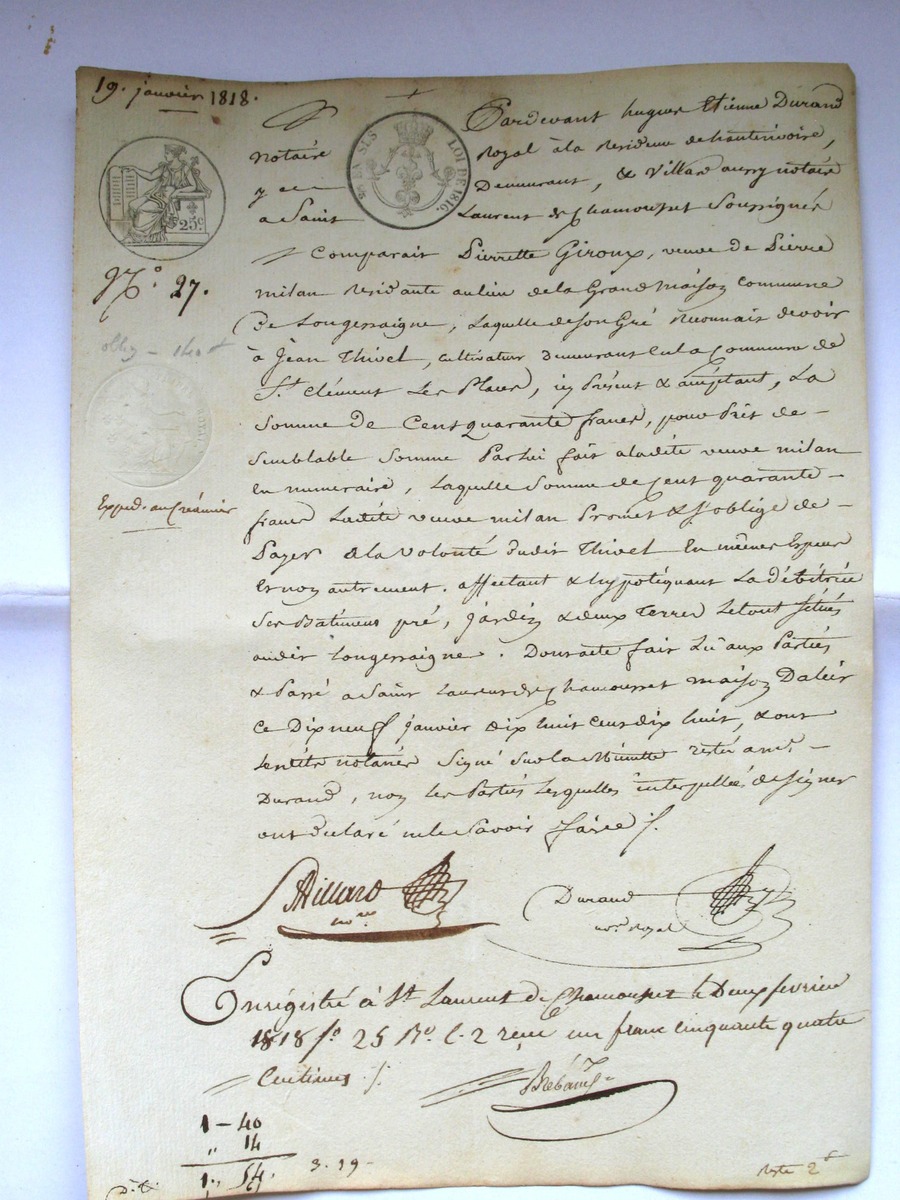 19. janvier 1818.
Pardevant hugues Etienne Durand
notaire Royal à la Residence de hauterivoire,
y Demeurant, & Villard aussy notaire
a Saint Laurent de Chamousset Soussignés
EN SUS LOI DE 1816.
25c
N.o 27.
Comparait Pierrette Giroux, veuve de Pierre
milan Residante au lieu de la Grand maison commune
De Longessaigne, Laquelle de son Gré reconnait devoir
à Jean Thivel, cultivateur demeurant en la Commune de
St. Clément Les Places, icy Présent & acceptant, La
Somme de Cent quarante francs, pour Prêt de
Semblable Somme Par lui fait a ladite veuve milan
En numeraire, Laquelle Somme de Cent quarante
francs Ladite veuve milan Promet & s'oblige de
Payer a la volonté dudit Thivel En mêmes Especes
Et non autrement. affectant & hypotéquant La débitrice
Ses Batimens pré, jardin & deux Terres Le tout Situés
audit Longessaigne. Dont acte fait Lu aux Parties
& Passé a Saint Laurent de Chamousset maison Daleir
Ce Dix neuf janvier dix huit cent dix huit, & ont
Lesdits notaires Signé Sur la Minutte restée a me.
Durand, non les Parties Lesquelles interpellées de Signer
ont declaré ne le Savoir faire ./.
Expéd. au Créancier
Villard
nore
Durand
not. Royal
Enrégistré à St. Laurent de Chamousset le Deux fevrier
1818 fo 25 Ro C. 2 reçu un franc cinquante quatre
Centimes ./.
1 - 40
" 14
1, 54.
3. 19 -